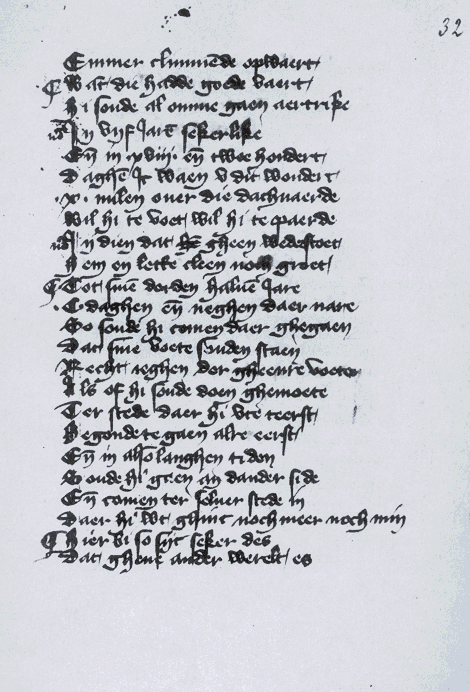 32
Emmer climmēde opwaert
Wat die hadde goede vaert
Hi soude al omme gaen aertrike
In vijf Jarē sekerlike
Eñ in .xviij. eñ twe hondert
Daghē Jc waen v dit wondert
.x. milen ouer die dachuaerde
wil hi te voet wil hi te paerde
In dien dat gheen wederstoet
Hem en lette cleen noch groet
Tot sinē derden haluē Jare
.C. daghen eñ neghen daer nare
So soude hi comen daer ghegaen
Dat sine voete souden staen
Recht ieghen dor gheenre voete
Als of hi soude doen ghemoete
Ter stede daer hi vte teerst
Begonde te gaen alre eerst
Eñ in also langhen tiden
Soude hi gaen an dander side
Eñ comen ter seluer stede in
Daer hi wt ghinc noch meer noch min
Hier bi so sijt seker des
Dat ghene ander werelt es